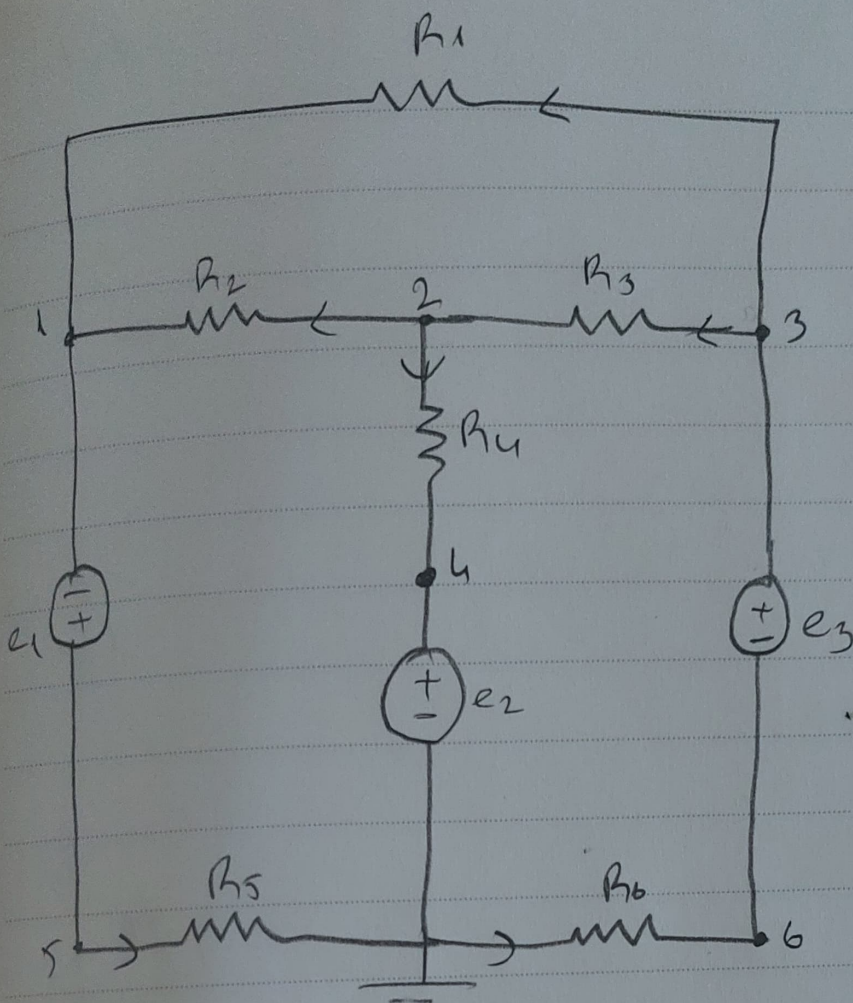 R1
R2
2
R3
1
3
R4
4
−
+
e1
+
−
e3
+
−
e2
R5
R6
5
6